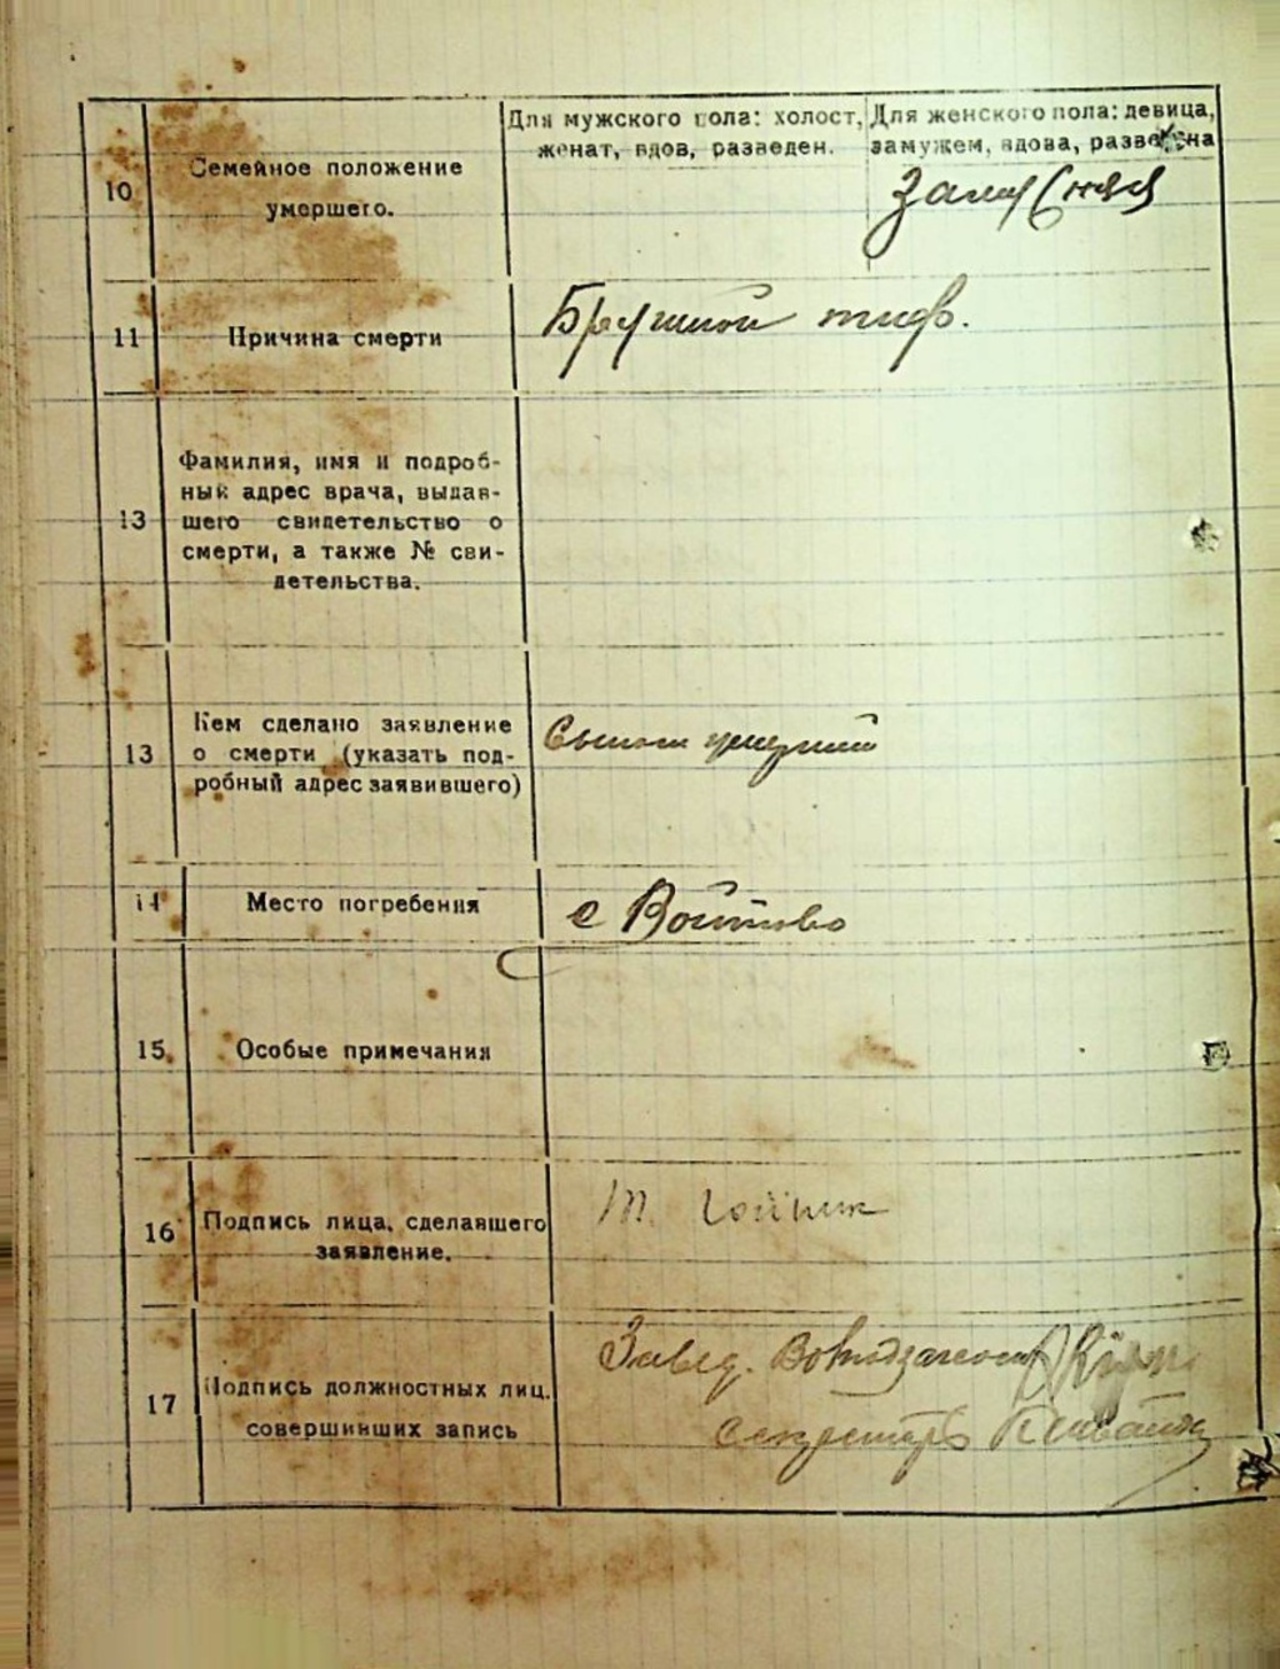 Для мужского пола: холост,
женат, вдов, разведен.
Для женского пола: девица,
замужем, вдова, разведена
10
Семейное положение
умершего.
Замужняя
11
Причина смерти
Брюшной тиф.
13
Фамилия, имя и подроб-
ный адрес врача, выдав-
шего свидетельство о
смерти, а также № сви-
детельства.
13
Кем сделано заявление
о смерти (указать под-
робный адрес заявившего)
Сыном умершей
14
Место погребения
с Войтово
15.
Особые примечания
16
Подпись лица, сделавшего
заявление.
М. Гойник
17
Подпись должностных лиц,
совершивших запись
Завед.
секретарь